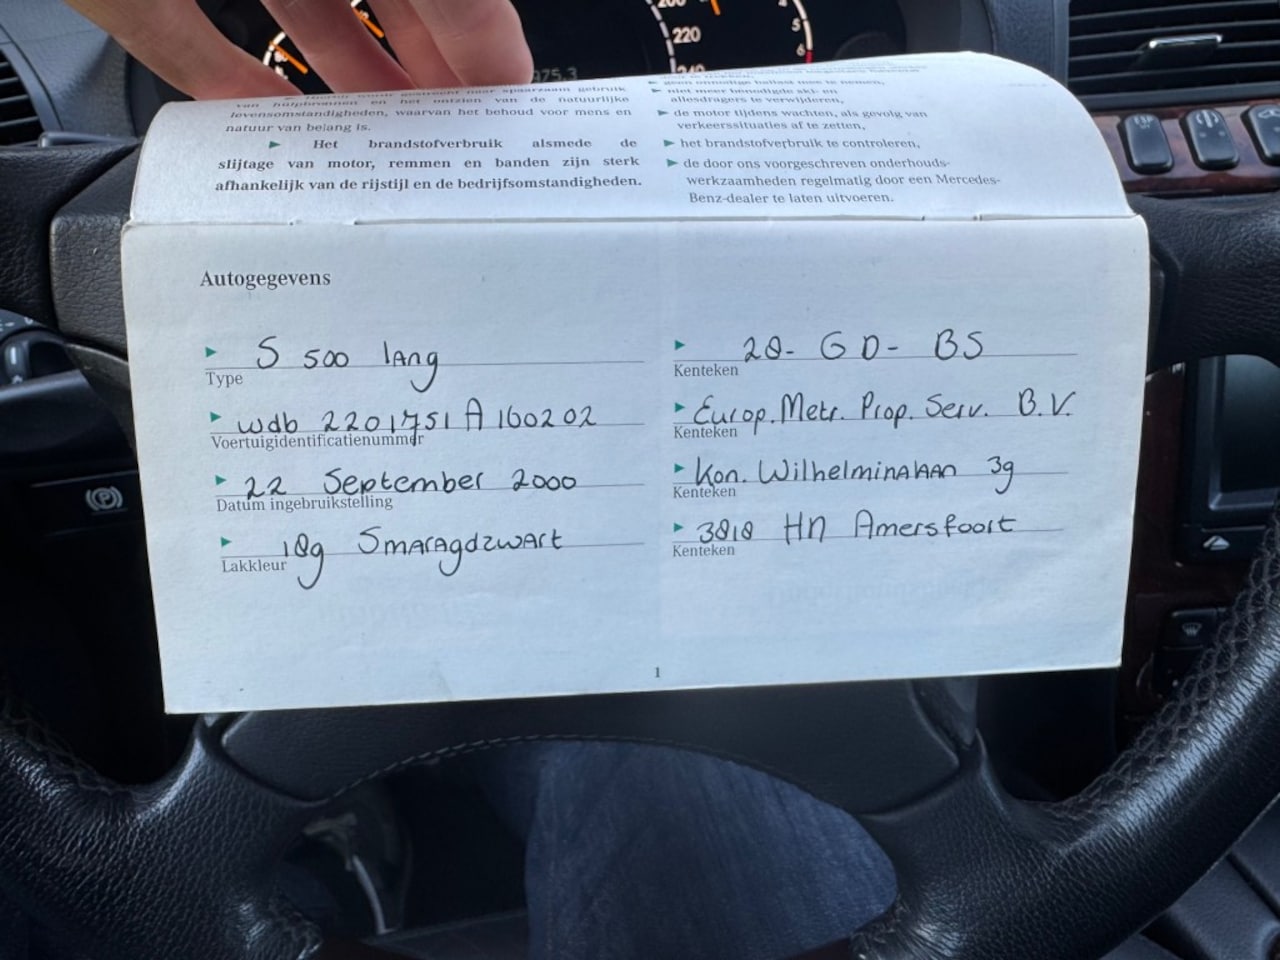 220
5
6
van hulpbronnen en het ontzien van de natuurlijke
levensomstandigheden, waarvan het behoud voor mens en
natuur van belang is.
► Het brandstofverbruik alsmede de
slijtage van motor, remmen en banden zijn sterk
afhankelijk van de rijstijl en de bedrijfsomstandigheden.
► niet meer benodigde ski- en
allesdragers te verwijderen,
► de motor tijdens wachten, als gevolg van
verkeerssituaties af te zetten,
► het brandstofverbruik te controleren,
► de door ons voorgeschreven onderhouds-
werkzaamheden regelmatig door een Mercedes-
Benz-dealer te laten uitvoeren.
Autogegevens
► S 500 lang
Type
► wdb 2201751A160202
Voertuigidentificatienummer
► 22 September 2000
Datum ingebruikstelling
► 189 Smaragdzwart
Lakkleur
► 28-GD-BS
Kenteken
► Europ. Metr. Prop. Serv. B.V.
Kenteken
► Kon. Wilhelminalaan 39
Kenteken
► 3818 HN Amersfoort
Kenteken
1